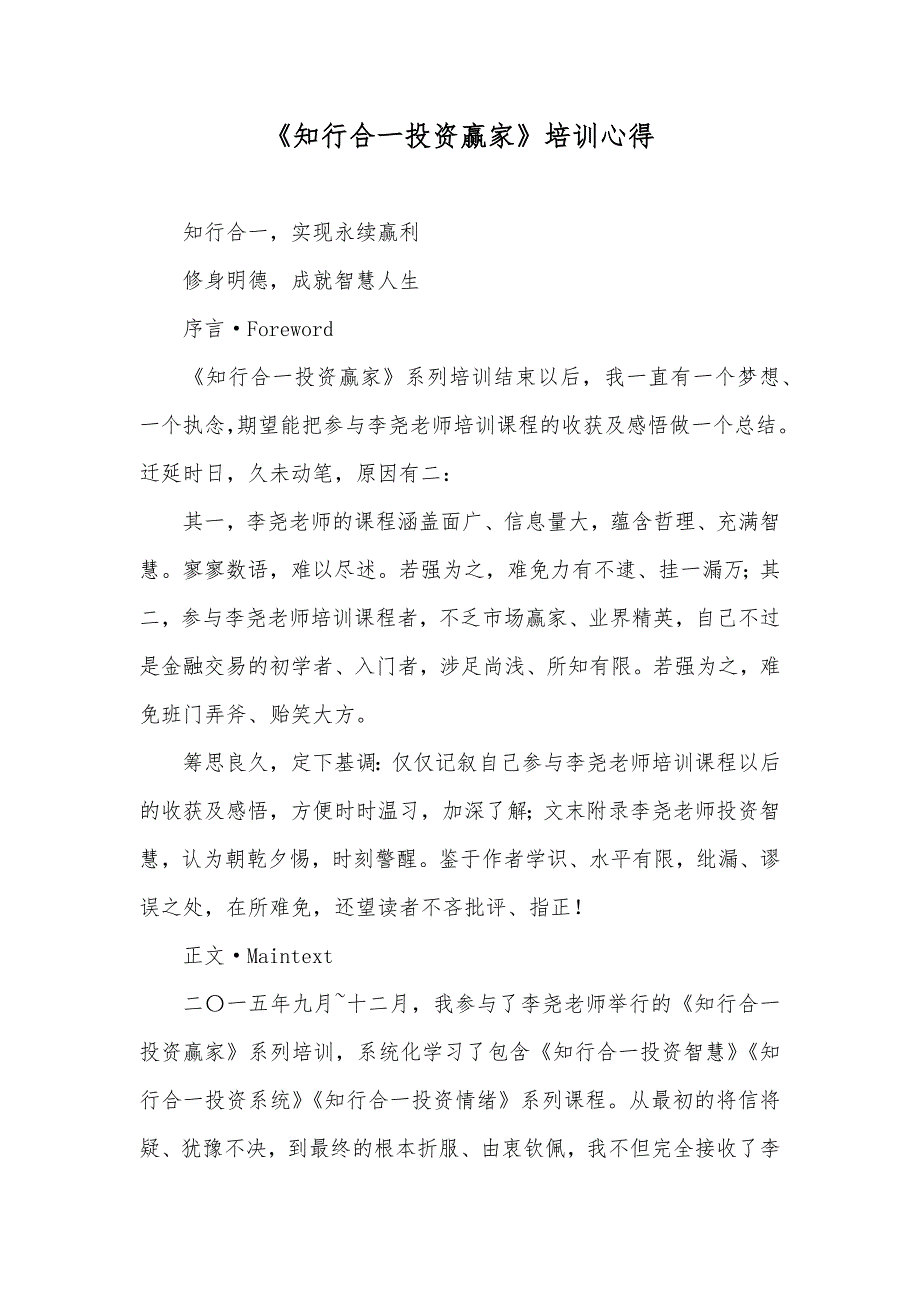 《知行合一投资赢家》培训心得
知行合一，实现永续赢利
修身明德，成就智慧人生
序言·Foreword
《知行合一投资赢家》系列培训结束以后，我一直有一个梦想、
一个执念，期望能把参与李尧老师培训课程的收获及感悟做一个总结。
迁延时日，久未动笔，原因有二：
其一，李尧老师的课程涵盖面广、信息量大，蕴含哲理、充满智
慧。寥寥数语，难以尽述。若强为之，难免力有不逮、挂一漏万；其
二，参与李尧老师培训课程者，不乏市场赢家、业界精英，自己不过
是金融交易的初学者、入门者，涉足尚浅、所知有限。若强为之，难
免班门弄斧、贻笑大方。
筹思良久，定下基调：仅仅记叙自己参与李尧老师培训课程以后
的收获及感悟，方便时时温习，加深了解；文末附录李尧老师投资智
慧，认为朝乾夕惕，时刻警醒。鉴于作者学识、水平有限，纰漏、谬
误之处，在所难免，还望读者不吝批评、指正！
正文·Maintext
二〇一五年九月~十二月，我参与了李尧老师举行的《知行合一
投资赢家》系列培训，系统化学习了包含《知行合一投资智慧》《知
行合一投资系统》《知行合一投资情绪》系列课程。从最初的将信将
疑、犹豫不决，到最终的根本折服、由衷钦佩，我不但完全接收了李